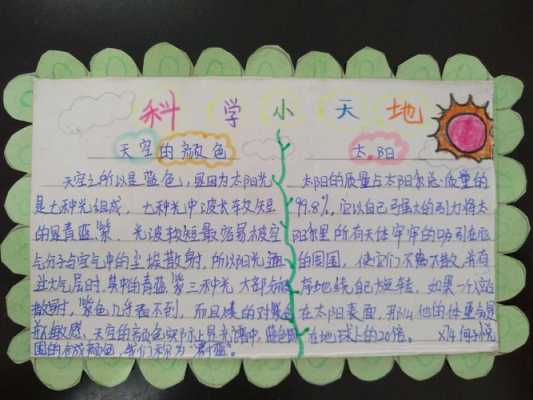 科学小天地
天空的颜色
天空之所以是蓝色,是因为太阳光
是七种光组成,七种光中波长较短
的是青蓝紫,光波较短最容易被空
气分子与空气中的尘埃散射,所以阳光
过大气层时,其中的青蓝紫三种光大部分
散射,紫色几乎看不到,而且
敏感,天空的颜色实际上是光谱中蓝色
国的合成颜色,我们称为"蔚蓝"。
太阳
太阳的质量占太阳系总质量的
99.8%,它以自己强大的引力将太
阳系里所有天体牢牢的吸引在
的周围,使它们不离不散,
有地绕自己旋转,如果一个
在太阳表面,那么他的体重
在地球上的20倍。